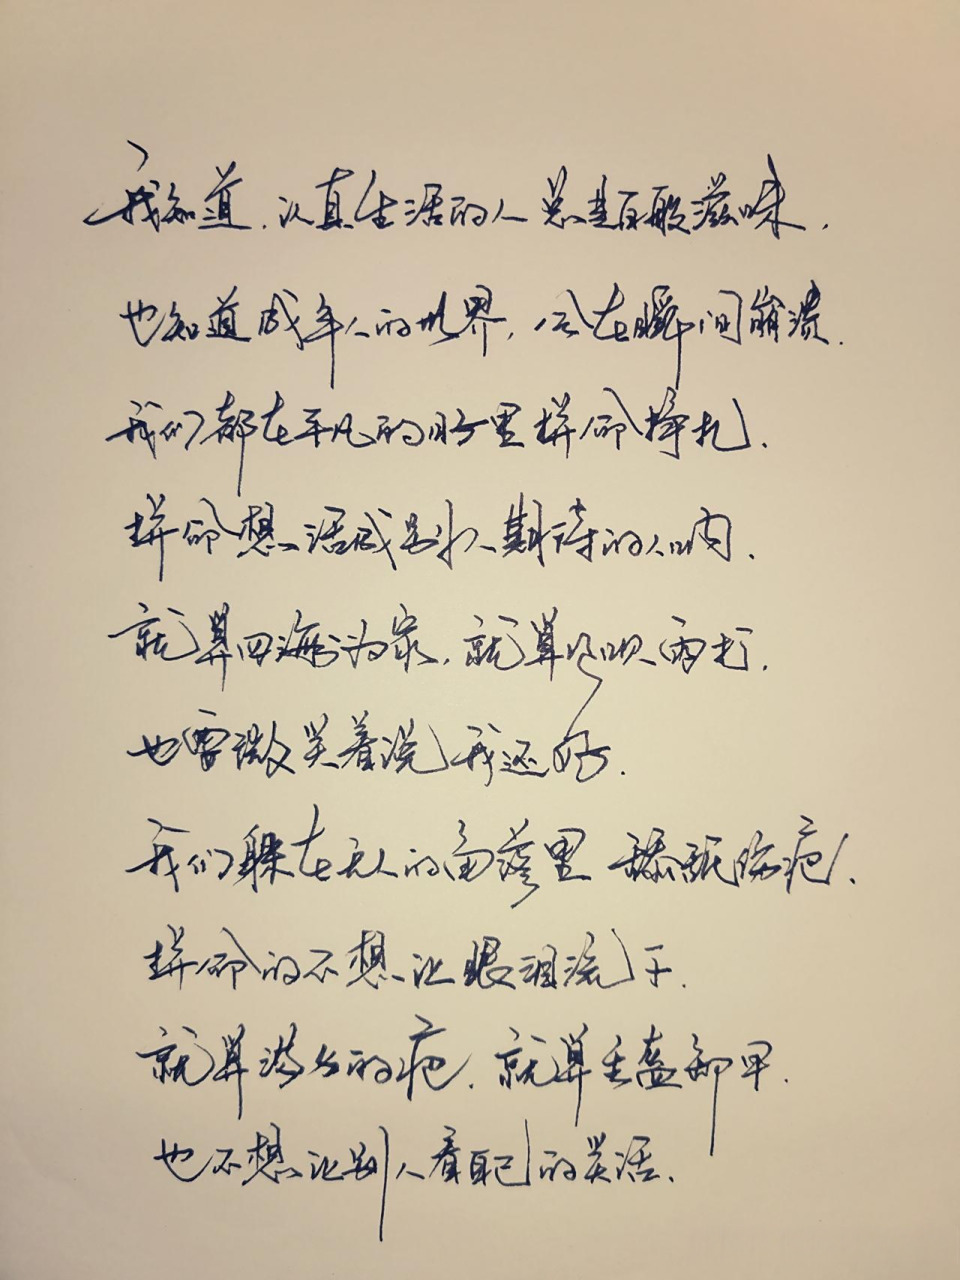 我知道，认真生活的人总是百般滋味，
也知道成年人的世界，只在瞬间崩溃.
我们都在平凡的日子里拼命挣扎，
拼命想活成别人期待的人
就算四海为家，就算风吹雨打，
也需微笑着说我还好.
我们躲在无人的角落里 舔舐伤疤，
拼命的不想让眼泪流下.
就算满身的疤，就算丢盔卸甲.
也不想让别人看自己的笑话.